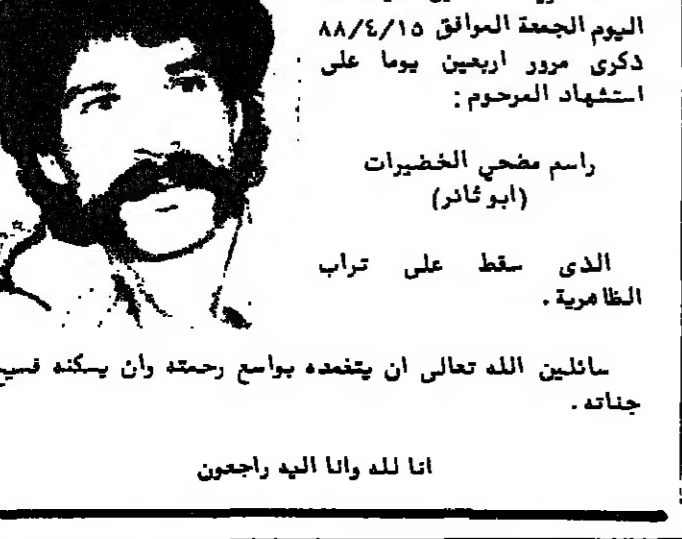 اليوم الجمعة الموافق ٨٨/٤/١٥
ذكرى مرور اربعين يوما على
استشهاد المرحوم :
راسم مضحي الخضيرات
(ابو ثائر)
الذى سقط على تراب
الظاهرية .
سائلين الله تعالى ان يتغمده بواسع رحمته وان يسكنه فسيح
جناته .
انا لله وانا اليه راجعون